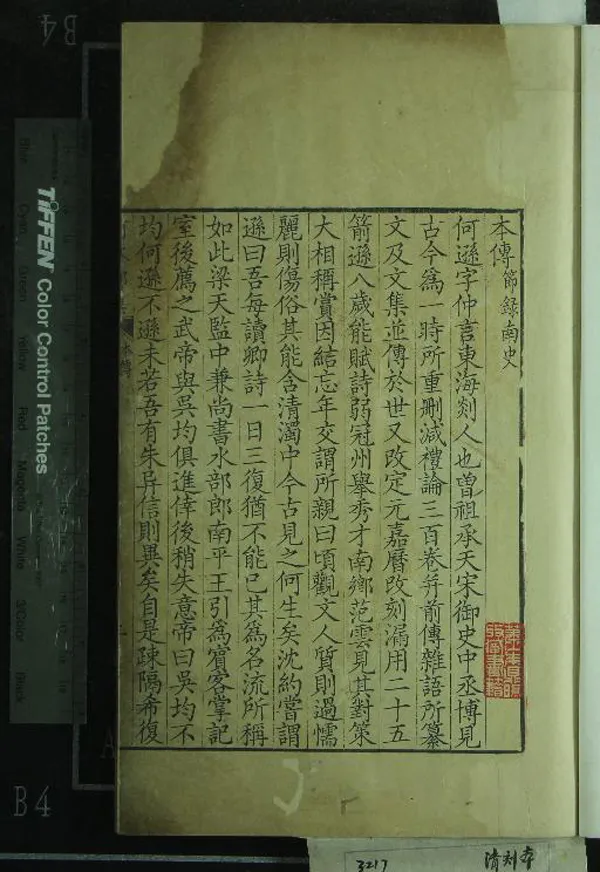 本傳節錄南史
何遜字仲言東海郯人也曾祖承天宋御史中丞博見
古今爲一時所重刪減禮論三百卷并前傳雜語所纂
文及文集並傳於世又改定元嘉曆改刻漏用二十五
箭遜八歲能賦詩弱冠州舉秀才南鄉范雲見其對策
大相稱賞因結忘年交謂所親曰頃觀文人質則過懦
麗則傷俗其能含清濁中今古見之何生矣沈約嘗謂
遜曰吾每讀卿詩一日三復猶不能已其爲名流所稱
如此梁天監中兼尚書水部郎南平王引爲賓客掌記
室後薦之武帝與吳均俱進倖後稍失意帝曰吳均不
均何遜不遜未若吾有朱异信則異矣自是疎隔希復
本傳
TIFFEN Color Control Patches
Blue
Cyan
Green
Yellow
Red
Magenta
White
3/Color
Black
B4
B4
3217
清刻本